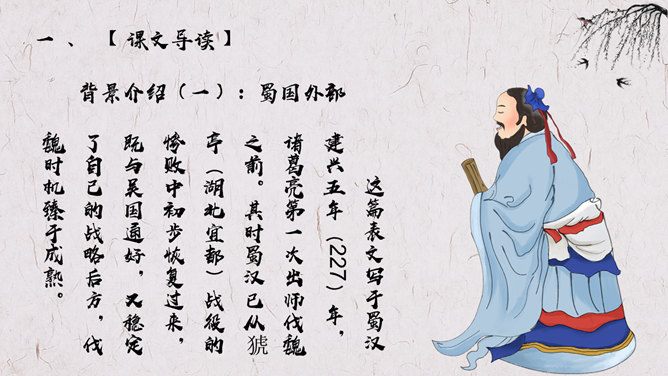 一、【课文导读】
背景介绍（一）：蜀国外部
这篇表文写于蜀汉
建兴五年（227）年，
诸葛亮第一次出师伐魏
之前。其时蜀汉已从猇
亭（湖北宜都）战役的
惨败中初步恢复过来，
既与吴国通好，又稳定
了自己的战略后方，伐
魏时机臻于成熟。